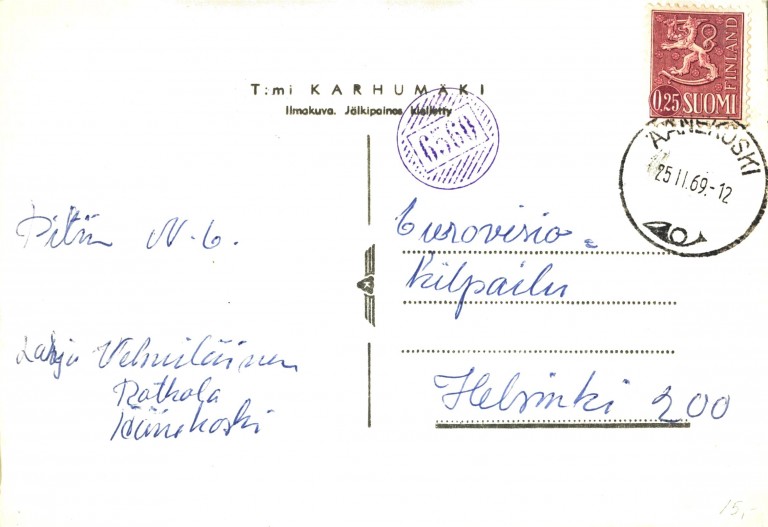 T:mi KARHUMÄKI
Ilmakuva. Jälkipainos kielletty
6560
0.25 SUOMI
FINLAND
ÄÄNEKOSKI
25 11.69.-12
Pitän N-6.
Eurovisio-
Kilpailu
Helsinki 200
Rotkola
Äänekoski
K
15,-